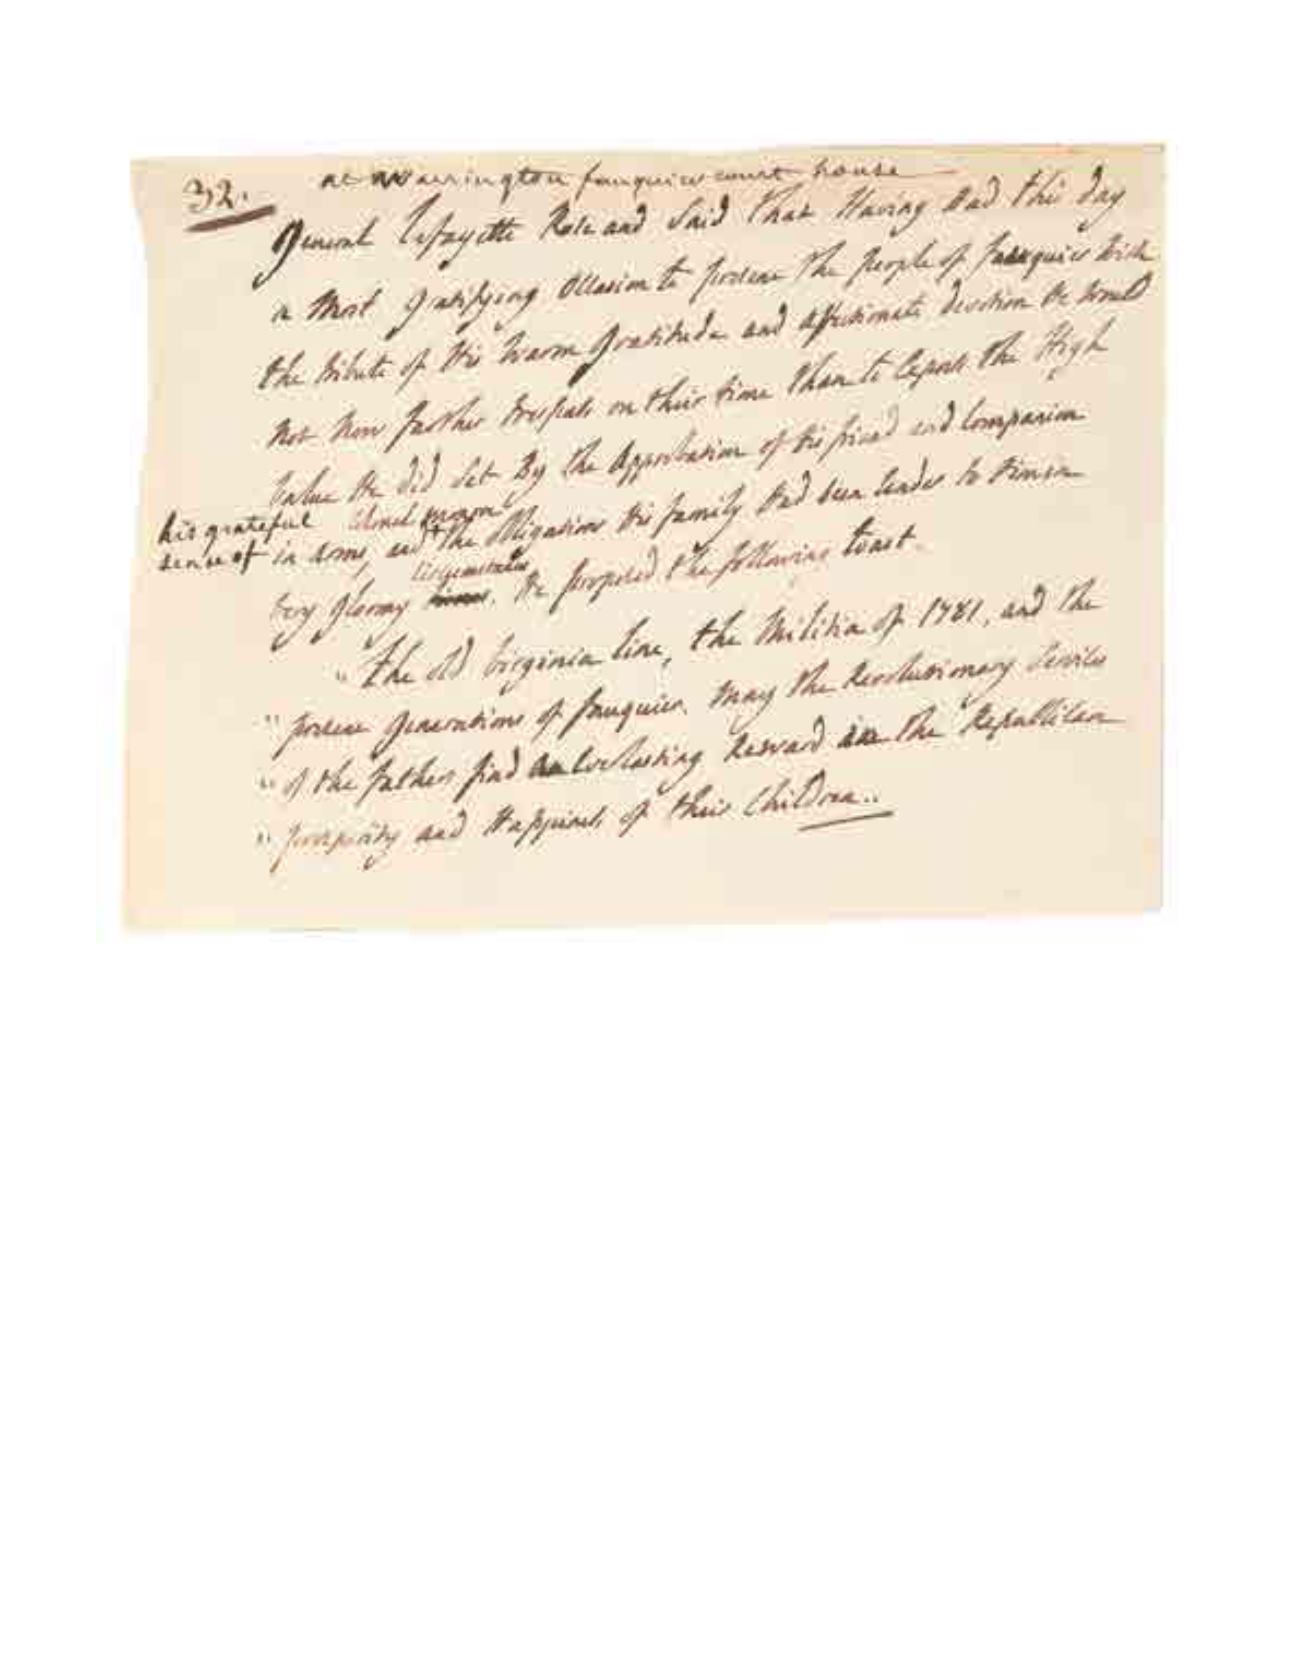 32.
at Warrington fauquier court house
General Lafayette Rose and Said that Having Had this day
a Most gratifying Occasion to present the people of fauquier With
the tribute of His Warm Gratitude and affectionate devotion He Would
Not Now further trespass on their time than to Express the High
Value He did Set By the Approbation of His friend and Companion
his grateful Colonel Monroe
sense of in Arms, and the Obligations His family Had been Under to Him in
Circumstances
Very gloomy times. He proposed the following toast.
"The old Virginia line, the Militia of 1781, and the
" present Generations of fauquier. May the Revolutionary Services
" of the fathers find an Everlasting Reward in the Republican
" prosperity and Happiness of their Children..